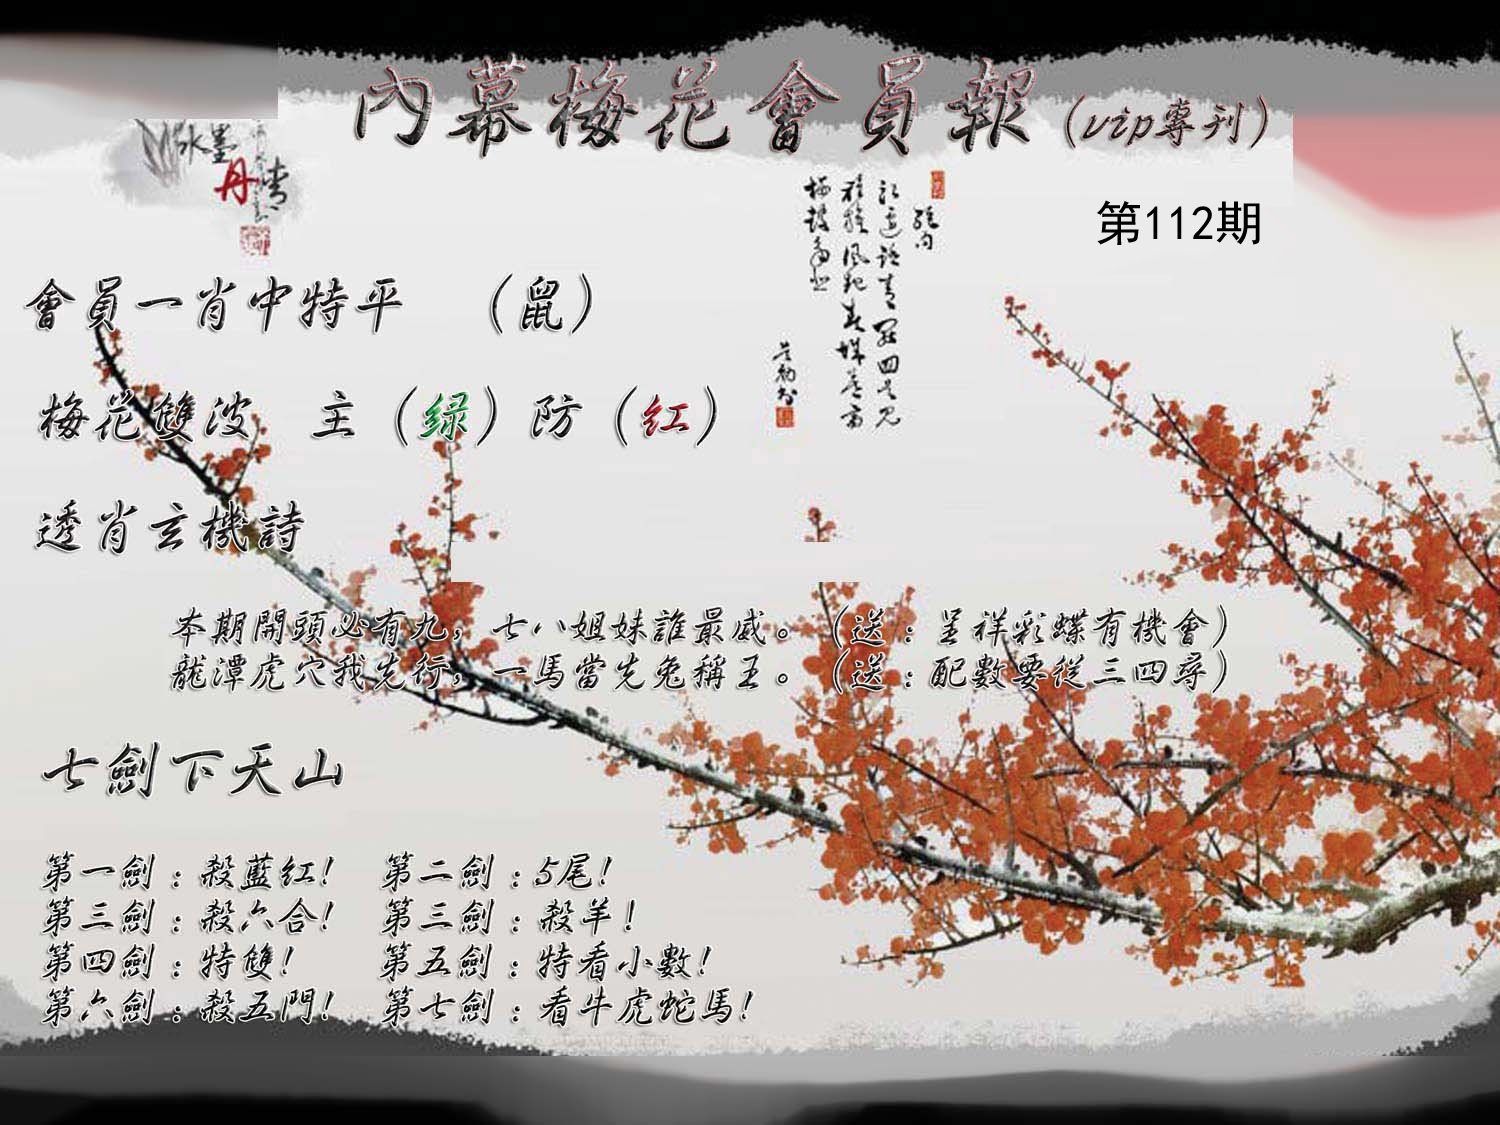 內幕梅花會員報(vip專刊)
水墨
丹青
第112期
會員一肖中特平 (鼠)
梅花雙波 主(绿)防(红)
透肖玄機詩
本期開頭必有九,七八姐妹誰最威。(送:呈祥彩蝶有機會)
龍潭虎穴我先行,一馬當先兔稱王。(送:配數要從三四尋)
七劍下天山
第一劍:殺藍红! 第二劍:5尾!
第三劍:殺六合! 第三劍:殺羊!
第四劍:特雙! 第五劍:特看小數!
第六劍:殺五門! 第七劍:看牛虎蛇馬!